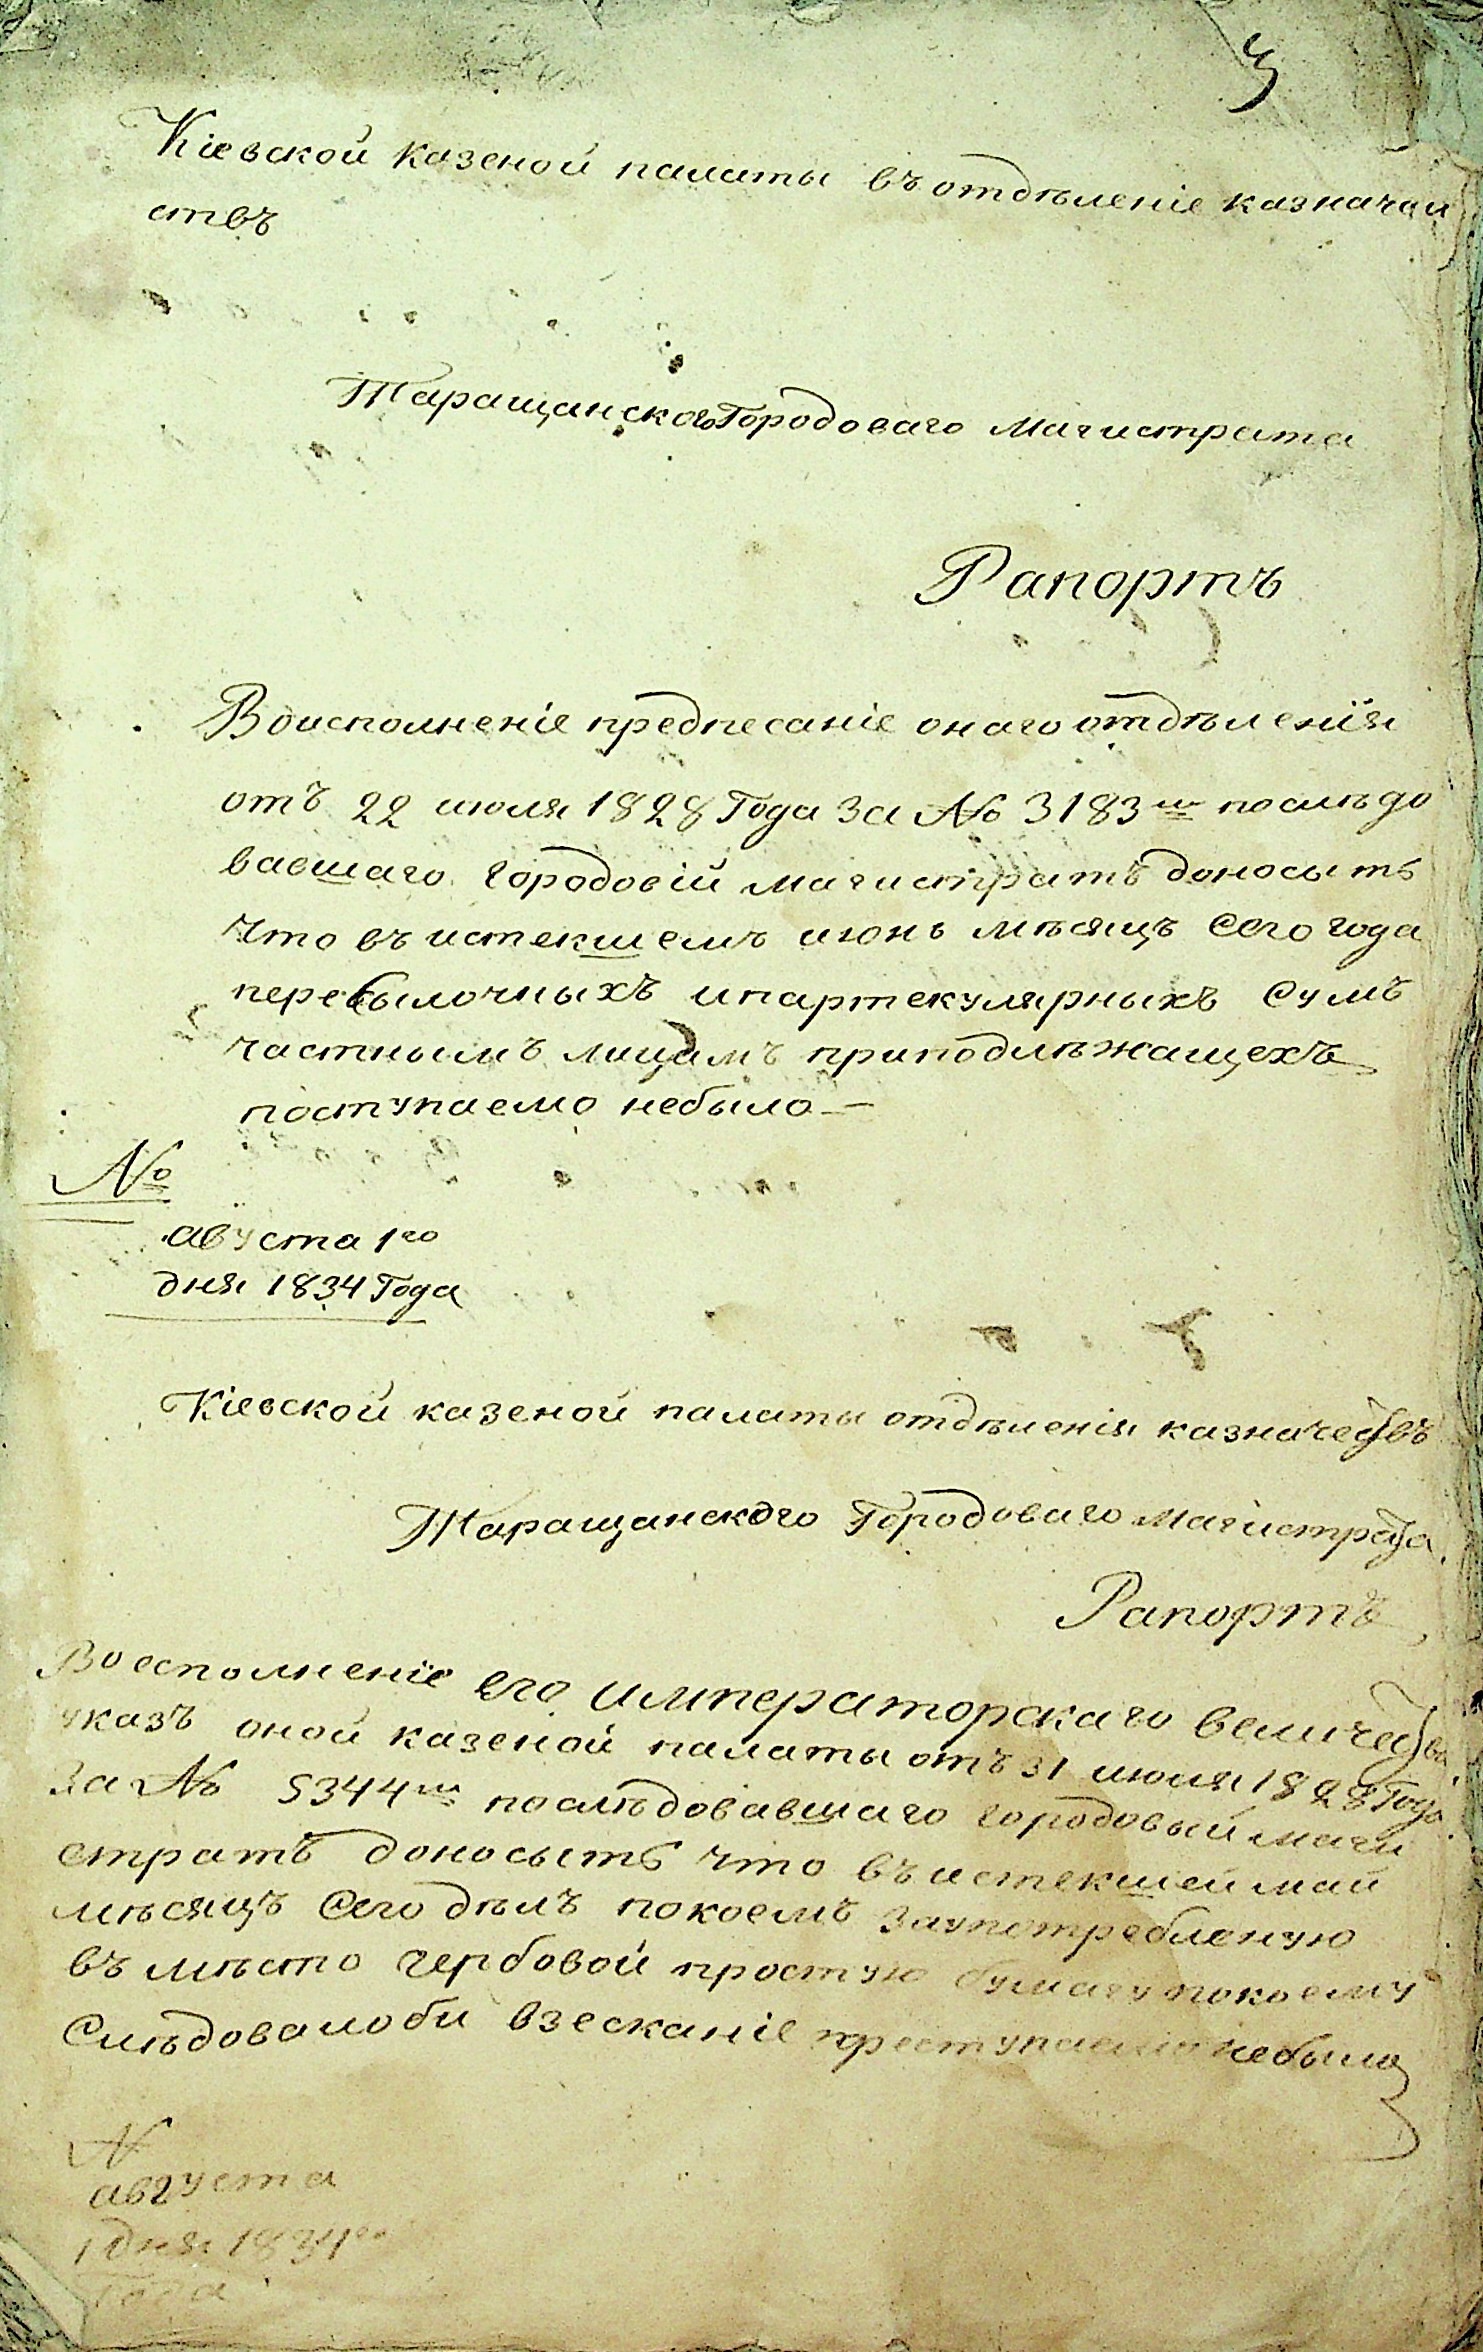 Кіевской казеной палаты въ отдѣленіе казначей
ствъ
Таращанского Городоваго магистрата
Рапортъ
Во исполненіе предпесаніе онаго отдѣленія
отъ 22 июля 1828 Года За № 3183м послѣдо
вавшаго городовій магистратъ доносытъ
что въ истекшемъ июнь мѣсяцъ сего года
пересылочныхъ ипартекулярныхъ сумъ
частнымъ лицамъ приподлѣжащехъ
поступаемо небыло
№
августа 1го
дня 1834 Года
Кіевской казеной палаты отдѣленія казначействъ
Таращанского Городоваго магистрата
Рапортъ
Во есполненіе его императорскаго величества
указъ оной казеной палаты отъ 31 июля 1828 Года
За № 5344м послѣдовавшаго городовый маги
стратъ доносытъ что въ истекшей май
мѣсяцъ сего дѣлъ покоемъ заупотребленую
въ мѣсто гербовой простую бумагу покоему
слѣдовало би взесканіе преступаемо небыло
№
августа
1 дня 1834го
Года